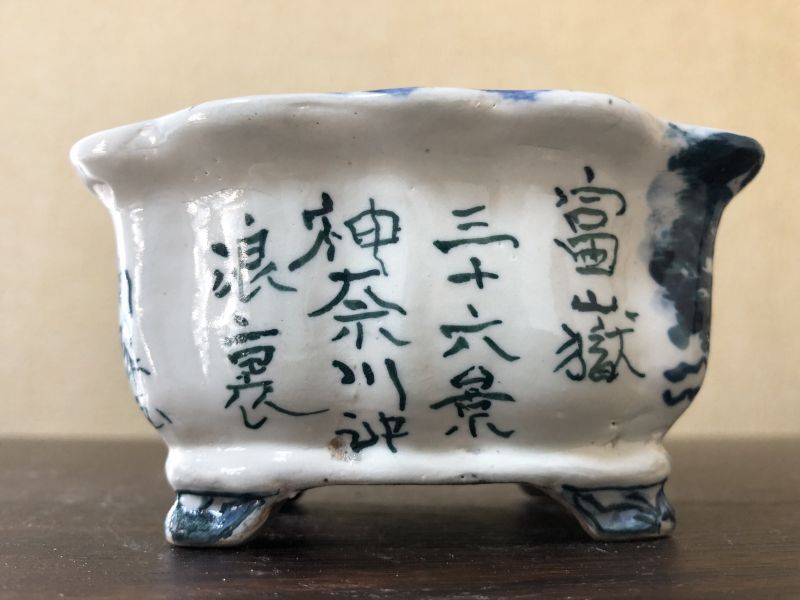 富嶽
三十六景
神奈川沖
浪裏